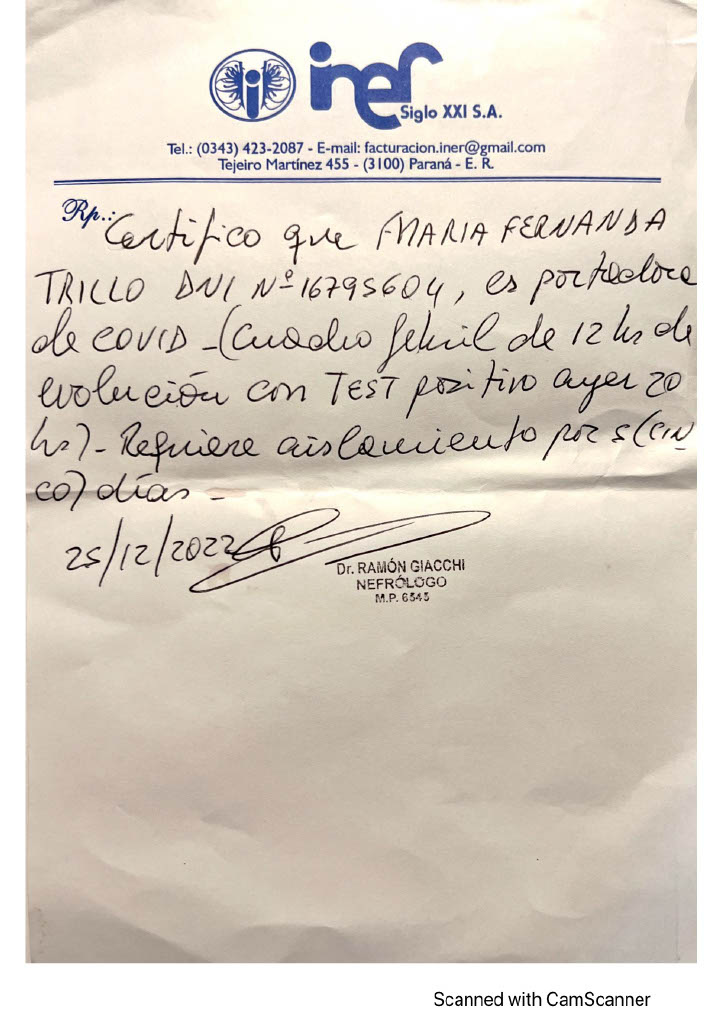 iner
Siglo XXI S.A.
Tel.: (0343) 423-2087 - E-mail: facturacion.iner@gmail.com
Tejeiro Martínez 455 - (3100) Paraná - E. R.
Rp.: Certifico que MARIA FERNANDA
TRILLO DNI Nº 16795604, es portadora
de COVID - (Cuadro febril de 12 hs de
evolución con TEST positivo ayer 20
hs) - Requiere aislamiento por 5 (CIN
CO) días -
25/12/2022
Dr. RAMÓN GIACCHI
NEFRÓLOGO
M.P. 6545
Scanned with CamScanner